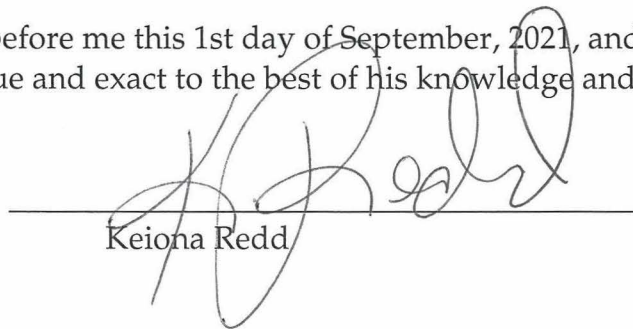 before me this 1st day of September, 2021, and
ue and exact to the best of his knowledge and
K Redd
Keiona Redd